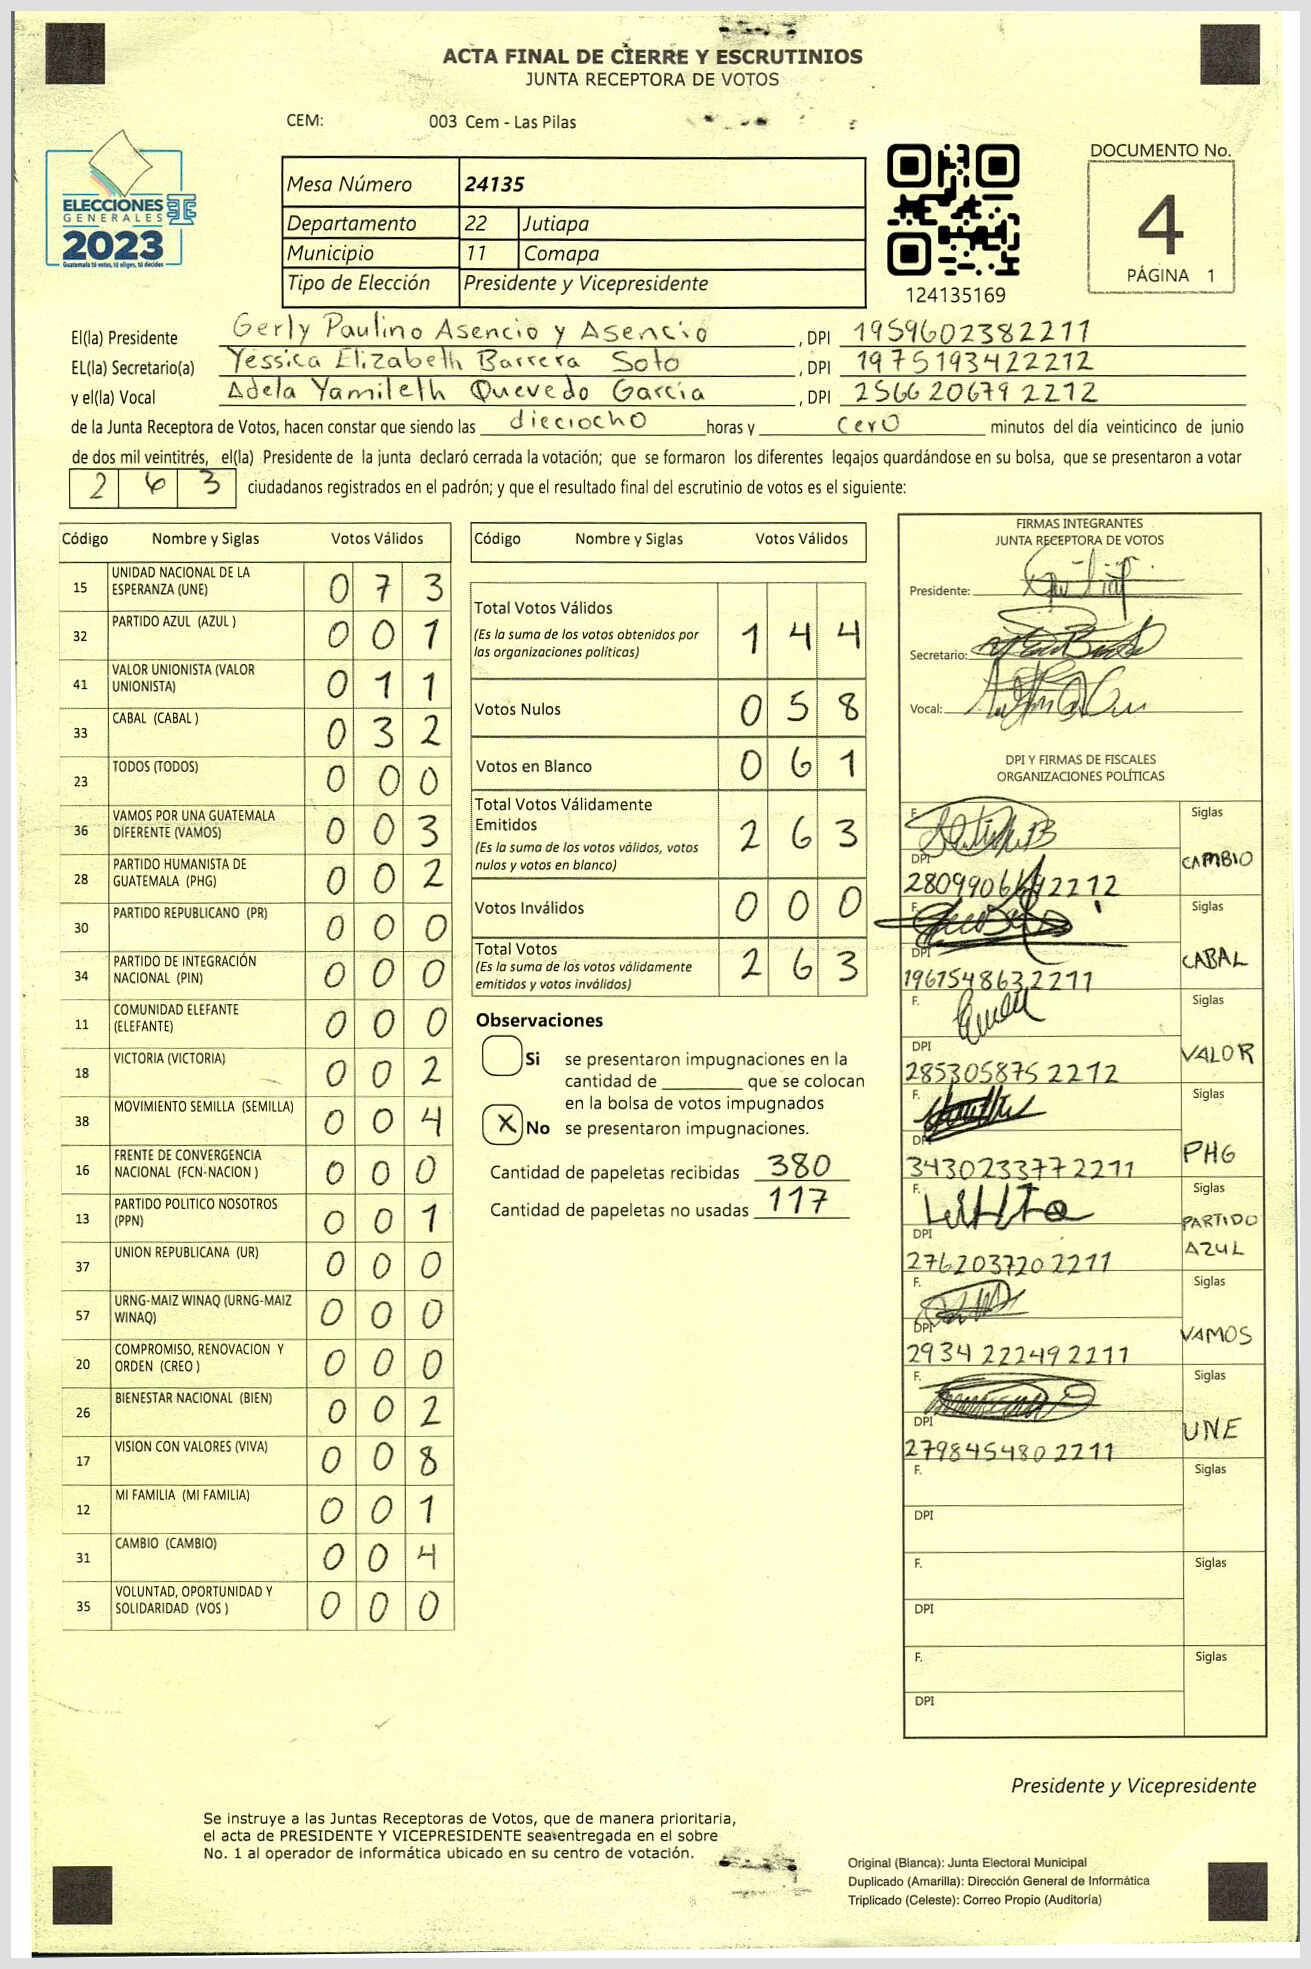 ACTA FINAL DE CIERRE Y ESCRUTINIOS
JUNTA RECEPTORA DE VOTOS
CEM: 003 Cem - Las Pilas
ELECCIONES
GENERALES
2023
Guatemala tú votas, tú eliges, tú decides
Mesa Número 24135
Departamento 22 Jutiapa
Municipio 11 Comapa
Tipo de Elección Presidente y Vicepresidente
124135169
DOCUMENTO No.
4
PÁGINA 1
El(la) Presidente Gerly Paulino Asencio y Asencio , DPI 1959602382211
EL(la) Secretario(a) Yessica Elizabeth Barrera Soto , DPI 1975193422212
y el(la) Vocal Adela Yamileth Quevedo García , DPI 2566206792212
de la Junta Receptora de Votos, hacen constar que siendo las dieciocho horas y cero minutos del día veinticinco de junio
de dos mil veintitrés, el(la) Presidente de la junta declaró cerrada la votación; que se formaron los diferentes legajos guardándose en su bolsa, que se presentaron a votar
2 6 3 ciudadanos registrados en el padrón; y que el resultado final del escrutinio de votos es el siguiente:
Código Nombre y Siglas Votos Válidos
15 UNIDAD NACIONAL DE LA ESPERANZA (UNE) 0 7 3
32 PARTIDO AZUL (AZUL ) 0 0 1
41 VALOR UNIONISTA (VALOR UNIONISTA) 0 1 1
33 CABAL (CABAL ) 0 3 2
23 TODOS (TODOS) 0 0 0
36 VAMOS POR UNA GUATEMALA DIFERENTE (VAMOS) 0 0 3
28 PARTIDO HUMANISTA DE GUATEMALA (PHG) 0 0 2
30 PARTIDO REPUBLICANO (PR) 0 0 0
34 PARTIDO DE INTEGRACIÓN NACIONAL (PIN) 0 0 0
11 COMUNIDAD ELEFANTE (ELEFANTE) 0 0 0
18 VICTORIA (VICTORIA) 0 0 2
38 MOVIMIENTO SEMILLA (SEMILLA) 0 0 4
16 FRENTE DE CONVERGENCIA NACIONAL (FCN-NACION ) 0 0 0
13 PARTIDO POLITICO NOSOTROS (PPN) 0 0 1
37 UNION REPUBLICANA (UR) 0 0 0
57 URNG-MAIZ WINAQ (URNG-MAIZ WINAQ) 0 0 0
20 COMPROMISO, RENOVACION Y ORDEN (CREO ) 0 0 0
26 BIENESTAR NACIONAL (BIEN) 0 0 2
17 VISION CON VALORES (VIVA) 0 0 8
12 MI FAMILIA (MI FAMILIA) 0 0 1
31 CAMBIO (CAMBIO) 0 0 4
35 VOLUNTAD, OPORTUNIDAD Y SOLIDARIDAD (VOS ) 0 0 0
Código Nombre y Siglas Votos Válidos
Total Votos Válidos 1 4 4
(Es la suma de los votos obtenidos por
las organizaciones políticas)
Votos Nulos 0 5 8
Votos en Blanco 0 6 1
Total Votos Válidamente
Emitidos 2 6 3
(Es la suma de los votos válidos, votos
nulos y votos en blanco)
Votos Inválidos 0 0 0
Total Votos 2 6 3
(Es la suma de los votos válidamente
emitidos y votos inválidos)
Observaciones
Si se presentaron impugnaciones en la
cantidad de ________ que se colocan
en la bolsa de votos impugnados
X No se presentaron impugnaciones.
Cantidad de papeletas recibidas 380
Cantidad de papeletas no usadas 117
FIRMAS INTEGRANTES
JUNTA RECEPTORA DE VOTOS
Presidente:
Secretario:
Vocal:
DPI Y FIRMAS DE FISCALES
ORGANIZACIONES POLÍTICAS
F. Siglas
DPI CAMBIO
F. Siglas
DPI CABAL
1961548632211
F. Siglas
DPI VALOR
2853058752212
F. Siglas
DPI PHG
3430233772211
F. Siglas
DPI PARTIDO AZUL
2762037202211
F. Siglas
DPI VAMOS
2934222492211
F. Siglas
DPI UNE
2798454802211
F. Siglas
DPI
F. Siglas
DPI
F. Siglas
DPI
Presidente y Vicepresidente
Se instruye a las Juntas Receptoras de Votos, que de manera prioritaria,
el acta de PRESIDENTE Y VICEPRESIDENTE sea entregada en el sobre
No. 1 al operador de informática ubicado en su centro de votación.
Original (Blanca): Junta Electoral Municipal
Duplicado (Amarilla): Dirección General de Informática
Triplicado (Celeste): Correo Propio (Auditoría)